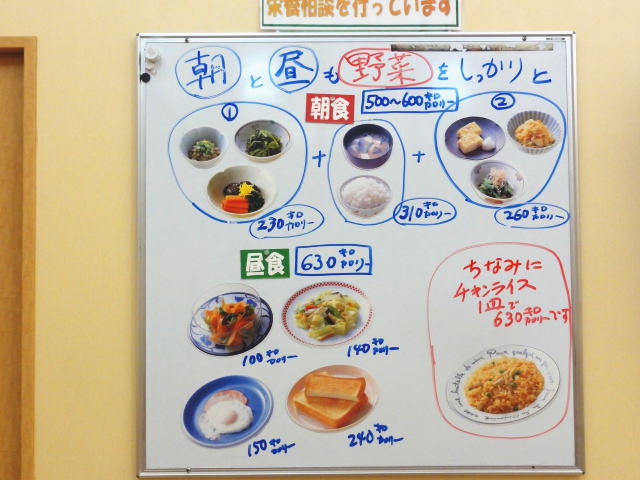 栄養相談を行っています
朝と昼も野菜をしっかりと
朝食 500〜600キロカロリー
① ②
+ +
230キロカロリー 310キロカロリー 260キロカロリー
昼食 630キロカロリー
ちなみに
チキンライス
1皿で
630キロカロリーです
100キロカロリー 140キロカロリー
150キロカロリー 240キロカロリー